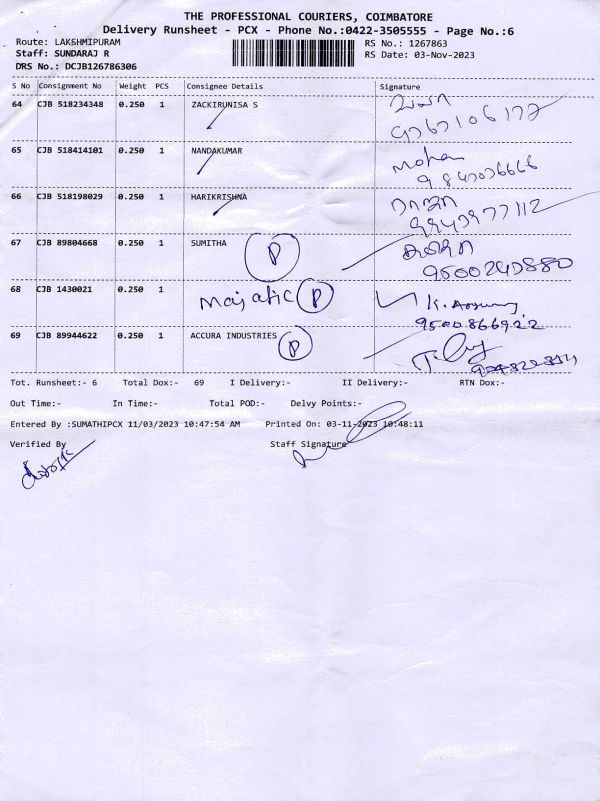 THE PROFESSIONAL COURIERS, COIMBATORE
Delivery Runsheet - PCX - Phone No.:0422-3505555 - Page No.:6
Route: LAKSHMIPURAM RS No.: 1267863
Staff: SUNDARAJ R RS Date: 03-Nov-2023
DRS No.: DCJB126786306
S No Consignment No Weight PCS Consignee Details Signature
64 CJB 518234348 0.250 1 ZACKIRUNISA S
65 CJB 518414101 0.250 1 NANDAKUMAR Mohan
66 CJB 518198029 0.250 1 HARIKRISHNA ராஜா
67 CJB 89804668 0.250 1 SUMITHA P
9500240880
68 CJB 1430021 0.250 1 Majatic P K.
9500866922
69 CJB 89944622 0.250 1 ACCURA INDUSTRIES P
Tot. Runsheet:- 6 Total Dox:- 69 I Delivery:- II Delivery:- RTN Dox:-
Out Time:- In Time:- Total POD:- Delvy Points:-
Entered By :SUMATHIPCX 11/03/2023 10:47:54 AM Printed On: 03-11-2023 10:48:11
Verified By Staff Signature